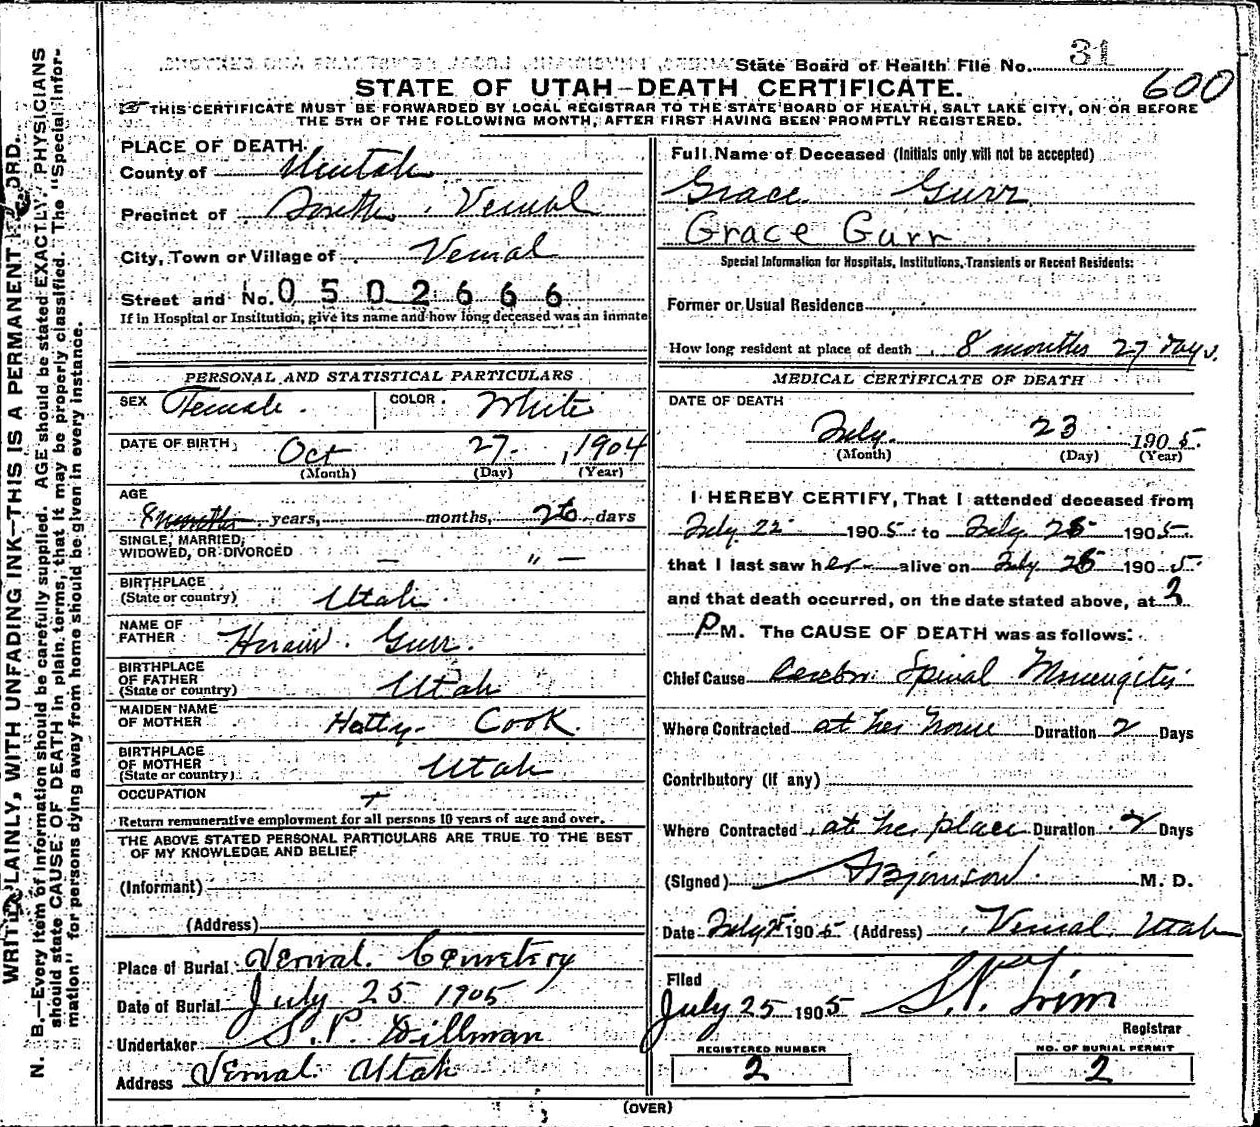 State Board of Health File No. 31
600
STATE OF UTAH—DEATH CERTIFICATE.
THIS CERTIFICATE MUST BE FORWARDED BY LOCAL REGISTRAR TO THE STATE BOARD OF HEALTH, SALT LAKE CITY, ON OR BEFORE
THE 5TH OF THE FOLLOWING MONTH, AFTER FIRST HAVING BEEN PROMPTLY REGISTERED.
PLACE OF DEATH
County of Uintah
Precinct of Vernal
City, Town or Village of Vernal
Street and No. 0502666
If in Hospital or Institution, give its name and how long deceased was an inmate
PERSONAL AND STATISTICAL PARTICULARS
SEX Female. COLOR. White
DATE OF BIRTH; Oct 27. , 1904
(Month) (Day) (Year)
AGE
8 months years, months, 26 days
SINGLE, MARRIED,
WIDOWED, OR DIVORCED — " —
BIRTHPLACE
(State or country) Utah.
NAME OF
FATHER Gurr.
BIRTHPLACE
OF FATHER
(State or country) Utah
MAIDEN NAME
OF MOTHER Hatty. Cook.
BIRTHPLACE
OF MOTHER
(State or country) Utah
OCCUPATION
Return remunerative employment for all persons 10 years of age and over.
THE ABOVE STATED PERSONAL PARTICULARS ARE TRUE TO THE BEST
OF MY KNOWLEDGE AND BELIEF
(Informant)
(Address)
Place of Burial Vernal. Cemetery
Date of Burial July 25 1905
Undertaker S. P. Dillman
Address Vernal. Utah
Full Name of Deceased (Initials only will not be accepted)
Grace Gurr
Grace Gurr
Special Information for Hospitals, Institutions, Transients or Recent Residents:
Former or Usual Residence
How long resident at place of death 8 months 27 days.
MEDICAL CERTIFICATE OF DEATH
DATE OF DEATH
July. 23 1905.
(Month) (Day) (Year)
I HEREBY CERTIFY, That I attended deceased from
July 22 1905 to July 1905.
that I last saw her alive on July 1905.
and that death occurred, on the date stated above, at 2
P M. The CAUSE OF DEATH was as follows:
Chief Cause Cerebro Spinal Meningitis
Where Contracted at her home Duration 2 Days
Contributory (if any)
Where Contracted at her place Duration 2 Days
(Signed) Bjornson. M. D.
Date July 1905 (Address) Vernal. Utah
Filed
July 25 1905
Registrar
REGISTERED NUMBER
2
NO. OF BURIAL PERMIT
2
(OVER)
WRITE PLAINLY, WITH UNFADING INK—THIS IS A PERMANENT RECORD.
N. B.—Every item of information should be carefully supplied. AGE should be stated EXACTLY. PHYSICIANS
should state CAUSE OF DEATH in plain terms, that it may be properly classified. The "Special Infor-
mation" for persons dying away from home should be given in every instance.